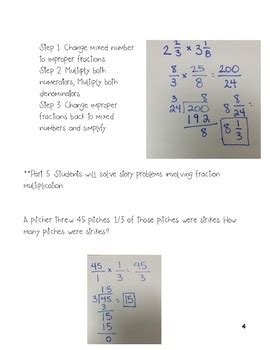 Step 1: Change mixed number
to improper fractions
Step 2: Multiply both
numerators, Multiply both
denominators
Step 3: Change improper
fractions back to mixed
numbers and simplify
2 2/3 × 3 1/8
8/3 × 25/8 = 200/24
3/24 8 8 8/24
24 200
192
8
8 1/3
**Part 5: Students will solve story problems involving fraction
multiplication.
A pitcher threw 45 pitches. 1/3 of those pitches were strikes. How
many pitches were strikes?
45/1 × 1/3 = 45/3
15
3 45 = 15
3
15
15
0
4